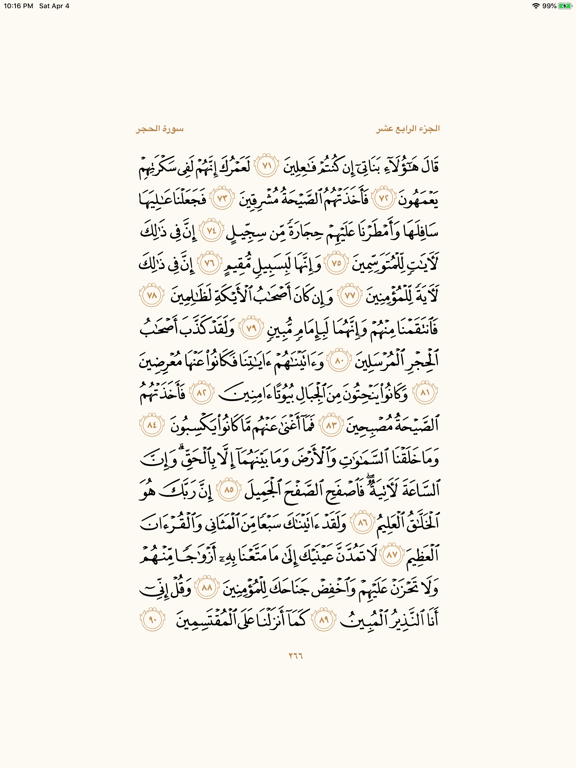 10:16 PM Sat Apr 4 99%
الجزء الرابع عشر سورة الحجر
قَالَ هَٰٓؤُلَآءِ بَنَاتِىٓ إِن كُنتُمْ فَٰعِلِينَ ٧١ لَعَمْرُكَ إِنَّهُمْ لَفِى سَكْرَتِهِمْ
يَعْمَهُونَ ٧٢ فَأَخَذَتْهُمُ ٱلصَّيْحَةُ مُشْرِقِينَ ٧٣ فَجَعَلْنَا عَٰلِيَهَا
سَافِلَهَا وَأَمْطَرْنَا عَلَيْهِمْ حِجَارَةً مِّن سِجِّيلٍ ٧٤ إِنَّ فِى ذَٰلِكَ
لَءَايَٰتٍ لِّلْمُتَوَسِّمِينَ ٧٥ وَإِنَّهَا لَبِسَبِيلٍ مُّقِيمٍ ٧٦ إِنَّ فِى ذَٰلِكَ
لَءَايَةً لِّلْمُؤْمِنِينَ ٧٧ وَإِن كَانَ أَصْحَٰبُ ٱلْأَيْكَةِ لَظَٰلِمِينَ ٧٨
فَٱنتَقَمْنَا مِنْهُمْ وَإِنَّهُمَا لَبِإِمَامٍ مُّبِينٍ ٧٩ وَلَقَدْ كَذَّبَ أَصْحَٰبُ
ٱلْحِجْرِ ٱلْمُرْسَلِينَ ٨٠ وَءَاتَيْنَٰهُمْ ءَايَٰتِنَا فَكَانُوا۟ عَنْهَا مُعْرِضِينَ
٨١ وَكَانُوا۟ يَنْحِتُونَ مِنَ ٱلْجِبَالِ بُيُوتًا ءَامِنِينَ ٨٢ فَأَخَذَتْهُمُ
ٱلصَّيْحَةُ مُصْبِحِينَ ٨٣ فَمَآ أَغْنَىٰ عَنْهُم مَّا كَانُوا۟ يَكْسِبُونَ ٨٤
وَمَا خَلَقْنَا ٱلسَّمَٰوَٰتِ وَٱلْأَرْضَ وَمَا بَيْنَهُمَآ إِلَّا بِٱلْحَقِّ ۗ وَإِنَّ
ٱلسَّاعَةَ لَءَاتِيَةٌ ۖ فَٱصْفَحِ ٱلصَّفْحَ ٱلْجَمِيلَ ٨٥ إِنَّ رَبَّكَ هُوَ
ٱلْخَلَّٰقُ ٱلْعَلِيمُ ٨٦ وَلَقَدْ ءَاتَيْنَٰكَ سَبْعًا مِّنَ ٱلْمَثَانِى وَٱلْقُرْءَانَ
ٱلْعَظِيمَ ٨٧ لَا تَمُدَّنَّ عَيْنَيْكَ إِلَىٰ مَا مَتَّعْنَا بِهِۦٓ أَزْوَٰجًا مِّنْهُمْ
وَلَا تَحْزَنْ عَلَيْهِمْ وَٱخْفِضْ جَنَاحَكَ لِلْمُؤْمِنِينَ ٨٨ وَقُلْ إِنِّىٓ
أَنَا ٱلنَّذِيرُ ٱلْمُبِينُ ٨٩ كَمَآ أَنزَلْنَا عَلَى ٱلْمُقْتَسِمِينَ ٩٠
٢٦٦